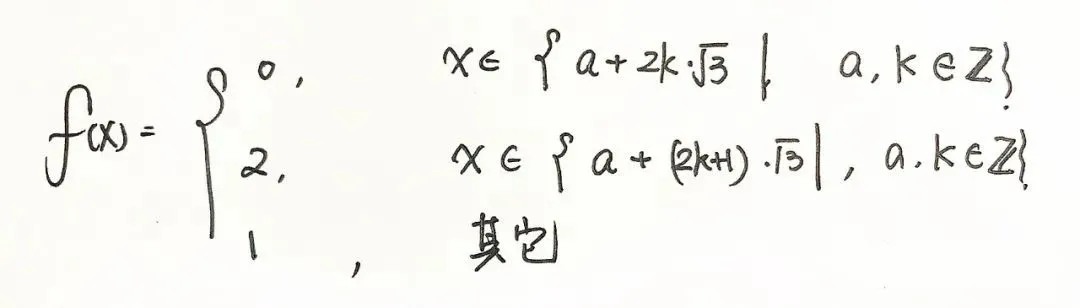 0, x∈{a+2k·√3 | a,k∈ℤ}
f(x)= { 2, x∈{a+(2k+1)·√3|, a,k∈ℤ}
1, 其它